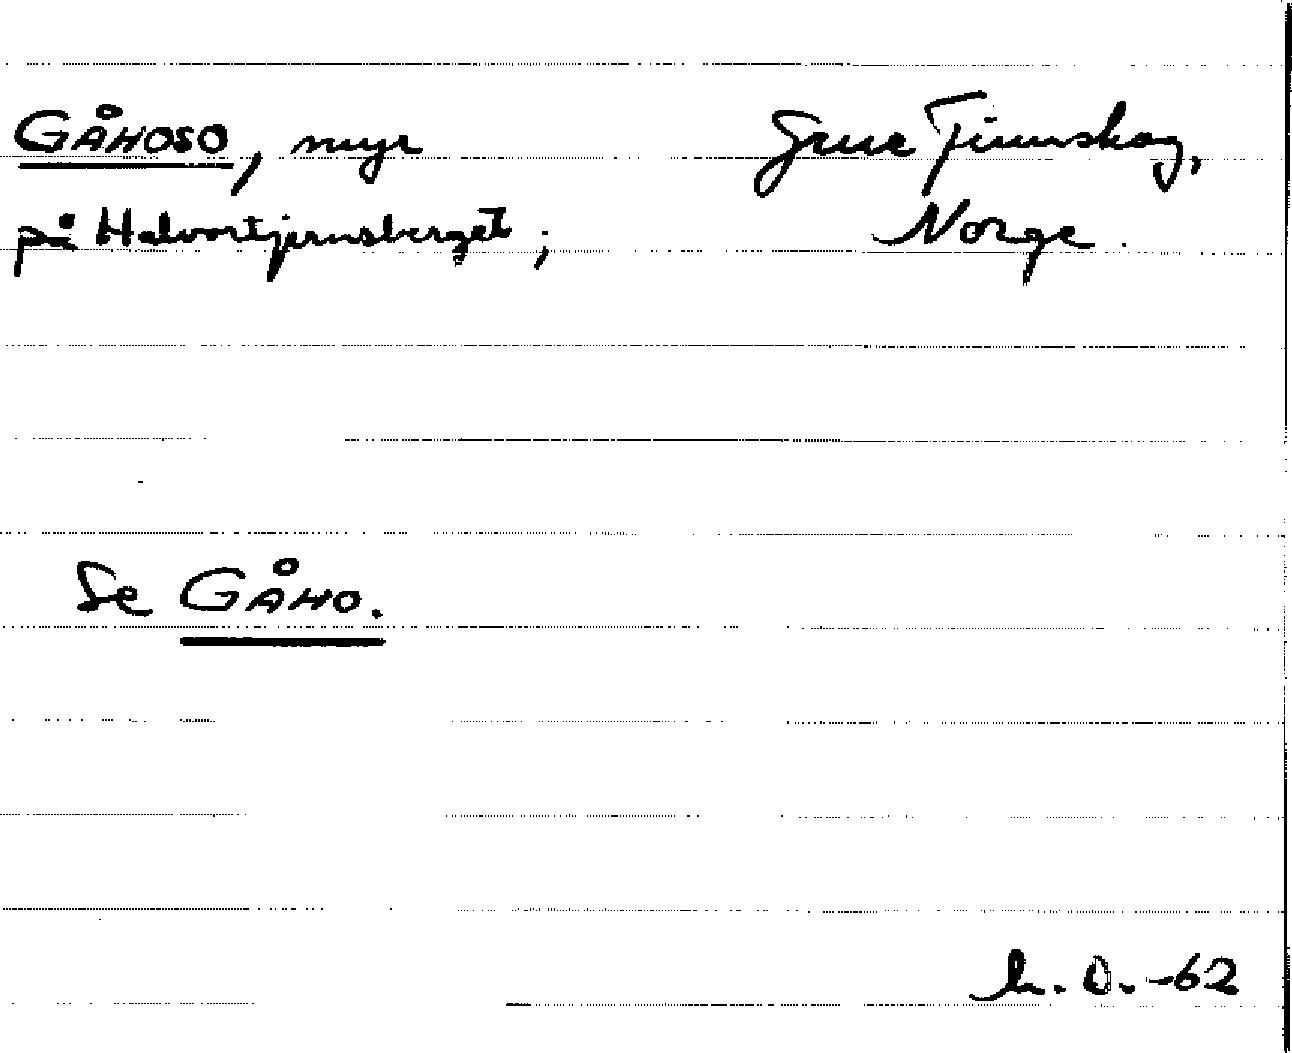 GÅHOSO, myr Grue Finnskog,
på Halvortjernsberget; Norge.
Se GÅHO.
h. O. -62